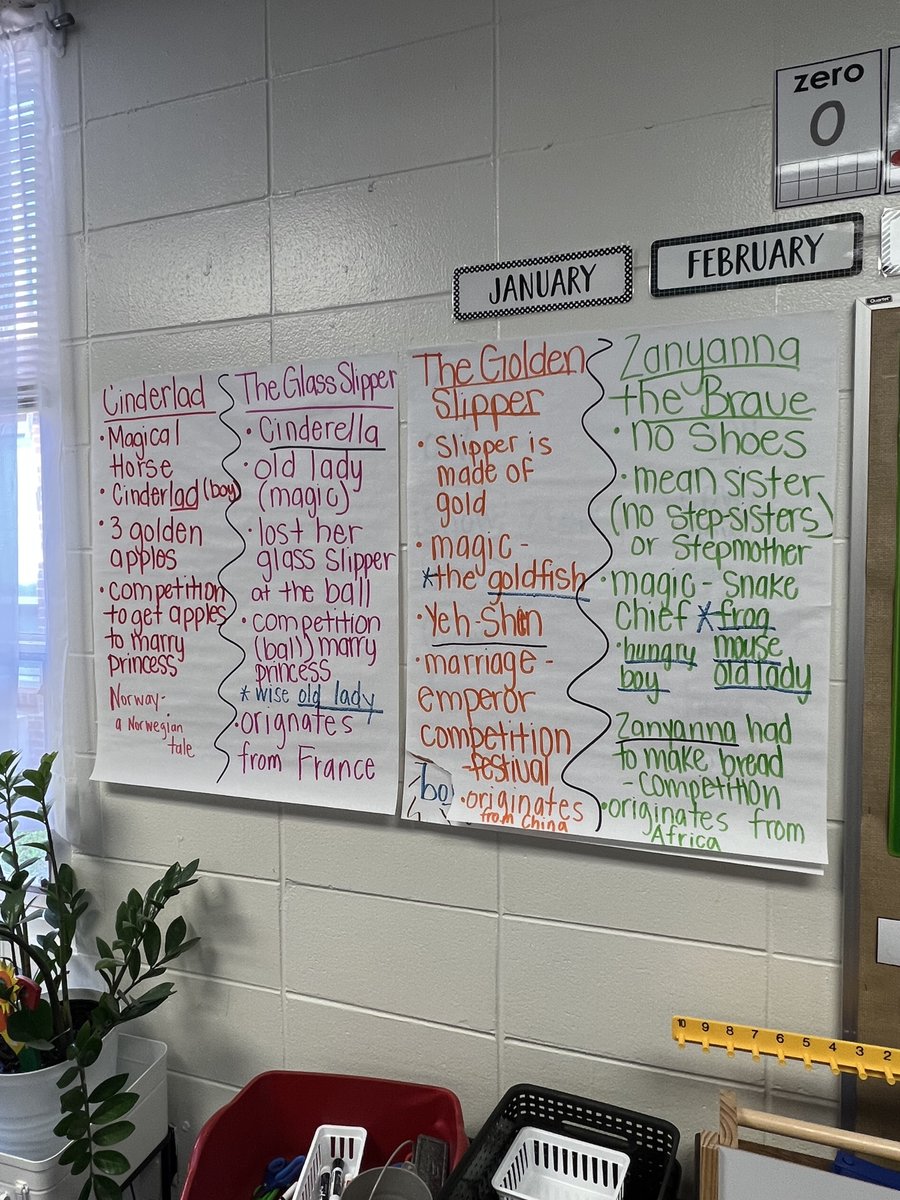 zero
0
JANUARY
FEBRUARY
Quartet
Cinderlad
• Magical
Horse
• Cinderlad (boy)
• 3 golden
apples
• competition
to get apples
to marry
princess
Norway-
a Norwegian
tale
The Glass Slipper
• Cinderella
• old lady
(magic)
• lost her
glass slipper
at the ball
• competition
(ball) marry
princess
* wise old lady
• orignates
from France
The Golden
Slipper
• Slipper is
made of
gold
• magic -
*the goldfish
• Yeh-Shen
• marriage -
emperor
competition
- festival
• originates
from China
bo
Zanyanna
the Brave
• no Shoes
• mean sister
(no Step-sisters)
or Stepmother
• magic - snake
Chief * frog
• hungry mouse
boy old lady
Zanyanna had
to make bread
- competition
• originates from
Africa
10 9 8 7 6 5 4 3 2